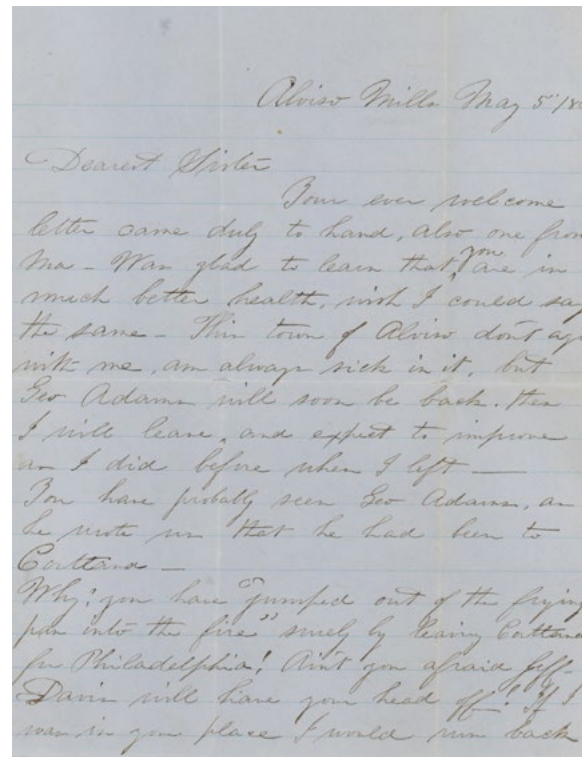 Alviso Mills May 5th 18
Dearest Sister
Your ever welcome
letter came duly to hand, also one from
Ma - Was glad to learn that you are in
much better health, wish I could say
the same - This town of Alviso don't ag
with me, am always sick in it, but
Geo Adams will soon be back. then
I will leave, and expect to improve
as I did before when I left —
You have probably seen Geo Adams, as
he wrote us that he had been to
Cortland —
Why! you have "jumped out of the frying
pan into the fire" surely by leaving Cortland
for Philadelphia! Ain't you afraid Jeff-
Davis will have your head off! If I
was in your place I would run back